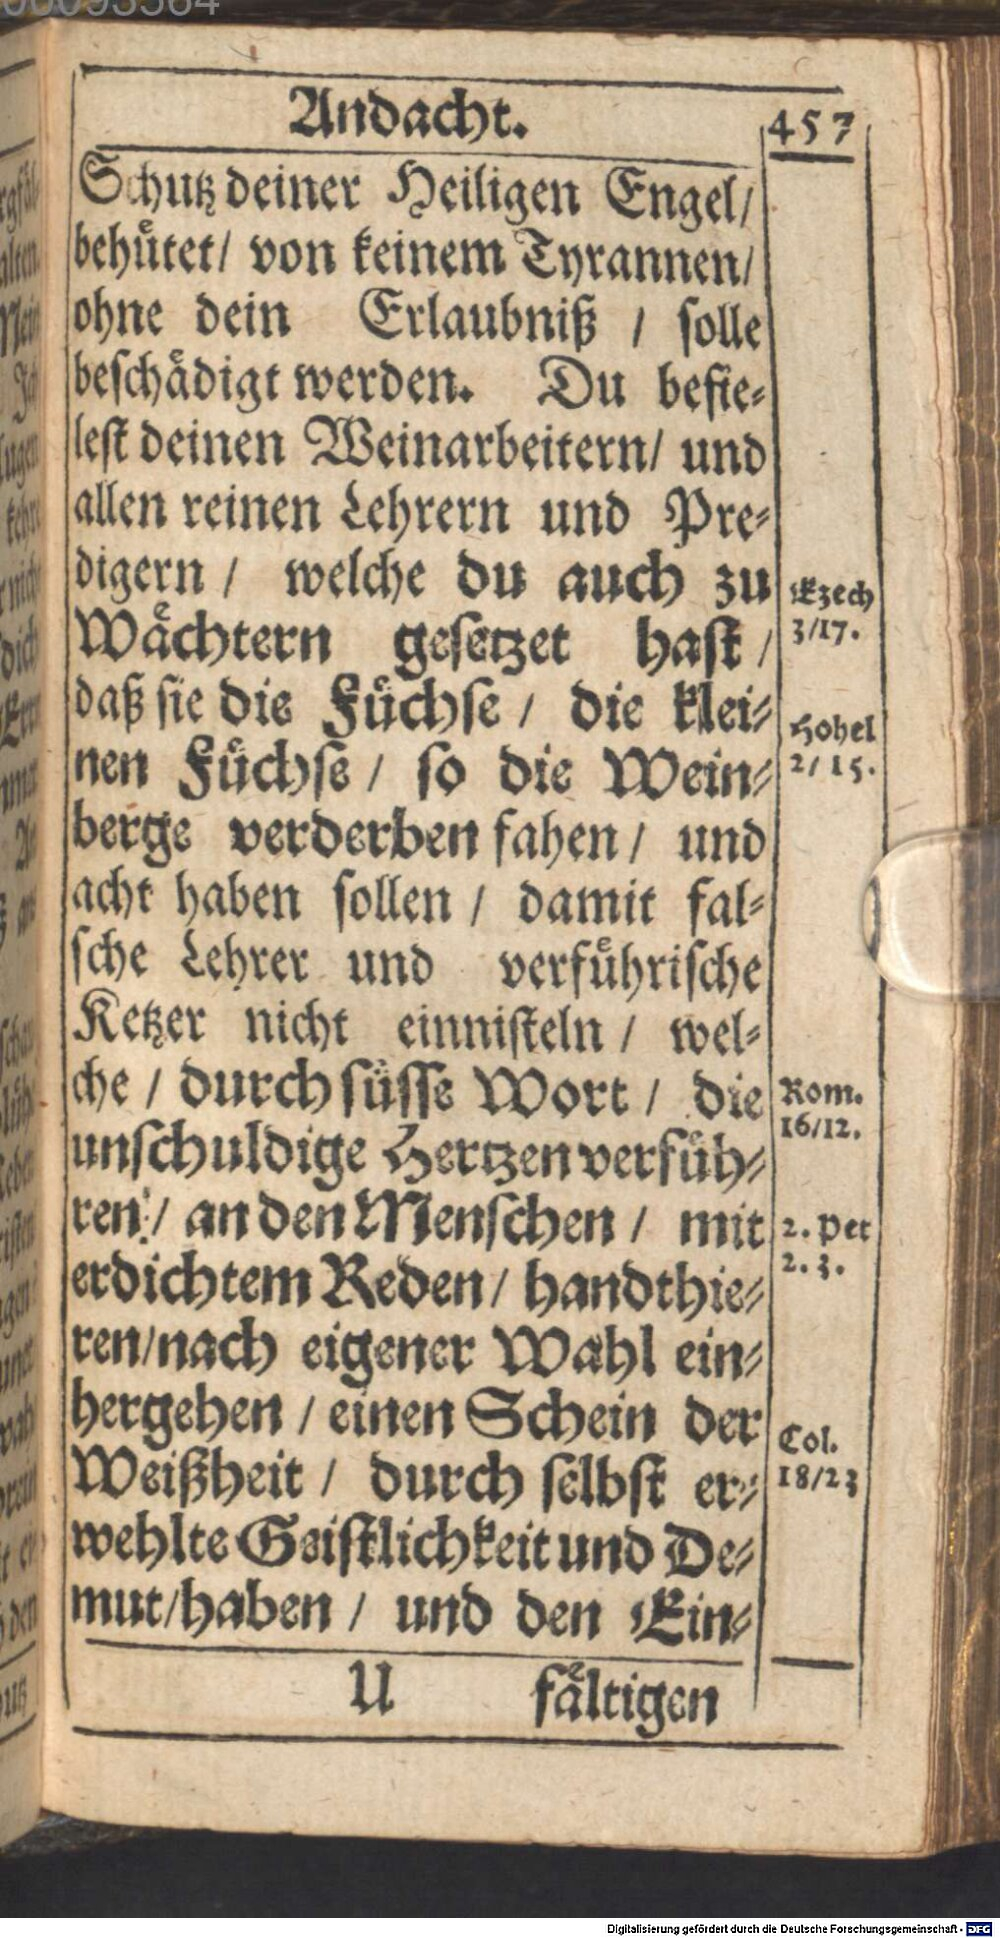 Andacht. 457
Schutz deiner Heiligen Engel/
behuͤtet/ von keinem Tyrannen/
ohne dein Erlaubniß / solle
beschaͤdigt werden. Du befie⸗
lest deinen Weinarbeitern/ und
allen reinen Lehrern und Pre⸗
digern / welche du auch zu
Waͤchtern gesetzet hast /
daß sie die Fuͤchse / die klei⸗
nen Fuͤchse / so die Wein⸗
berge verderben fahen / und
acht haben sollen / damit fal⸗
sche Lehrer und verfuͤhrische
Ketzer nicht einnisteln / wel⸗
che / durch suͤsse Wort / die
unschuldige Hertzen verfuͤh⸗
ren / an den Menschen / mit
erdichtem Reden / handthie⸗
ren/nach eigener Wahl ein⸗
hergehen / einen Schein der
Weißheit / durch selbst er⸗
wehlte Geistlichkeit und De⸗
mut/haben / und den Ein⸗
U faͤltigen
Ezech
3/17.
Hohel
2/15.
Rom.
16/12.
2. Pet
2. 3.
Col.
18/23
Digitalisierung gefördert durch die Deutsche Forschungsgemeinschaft - DFG